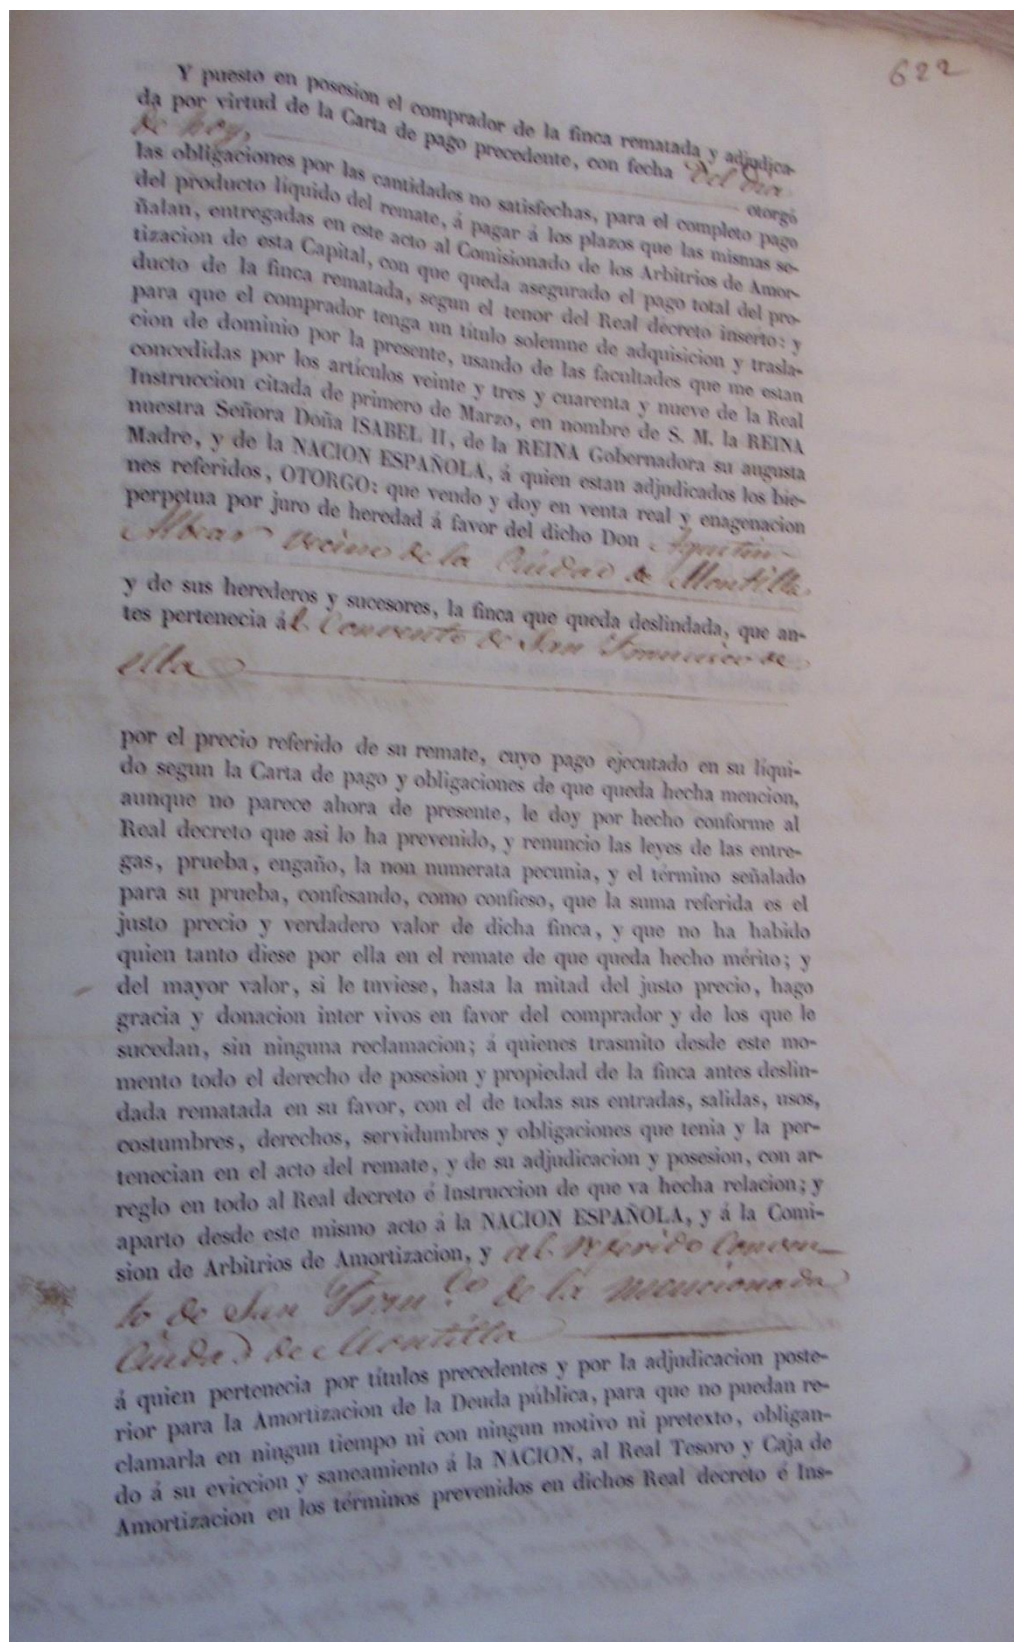 622
Y puesto en posesion el comprador de la finca rematada y adjudica-
da por virtud de la Carta de pago precedente, con fecha del dia
de hoy, otorgó
las obligaciones por las cantidades no satisfechas, para el completo pago
del producto líquido del remate, á pagar á los plazos que las mismas se-
ñalan, entregadas en este acto al Comisionado de los Arbitrios de Amor-
tizacion de esta Capital, con que queda asegurado el pago total del pro-
ducto de la finca rematada, segun el tenor del Real decreto inserto: y
para que el comprador tenga un título solemne de adquisicion y trasla-
cion de dominio por la presente, usando de las facultades que me estan
concedidas por los artículos veinte y tres y cuarenta y nueve de la Real
Instruccion citada de primero de Marzo, en nombre de S. M. la REINA
nuestra Señora Doña ISABEL II, de la REINA Gobernadora su augusta
Madre, y de la NACION ESPAÑOLA, á quien estan adjudicados los bie-
nes referidos, OTORGO: que vendo y doy en venta real y enagenacion
perpetua por juro de heredad á favor del dicho Don Agustin
Albear vecino de la Ciudad de Montilla
y de sus herederos y sucesores, la finca que queda deslindada, que an-
tes pertenecia ál Convento de San Francisco de
ella
por el precio referido de su remate, cuyo pago ejecutado en su líqui-
do segun la Carta de pago y obligaciones de que queda hecha mencion,
aunque no parece ahora de presente, le doy por hecho conforme al
Real decreto que asi lo ha prevenido, y renuncio las leyes de las entre-
gas, prueba, engaño, la non numerata pecunia, y el término señalado
para su prueba, confesando, como confieso, que la suma referida es el
justo precio y verdadero valor de dicha finca, y que no ha habido
quien tanto diese por ella en el remate de que queda hecho mérito; y
del mayor valor, si le tuviese, hasta la mitad del justo precio, hago
gracia y donacion inter vivos en favor del comprador y de los que le
sucedan, sin ninguna reclamacion; á quienes trasmito desde este mo-
mento todo el derecho de posesion y propiedad de la finca antes deslin-
dada rematada en su favor, con el de todas sus entradas, salidas, usos,
costumbres, derechos, servidumbres y obligaciones que tenia y la per-
tenecian en el acto del remate, y de su adjudicacion y posesion, con ar-
reglo en todo al Real decreto é Instruccion de que va hecha relacion; y
aparto desde este mismo acto á la NACION ESPAÑOLA, y á la Comi-
sion de Arbitrios de Amortizacion, y al referido Conven-
to de San Fran.co de la mencionada
Ciudad de Montilla
á quien pertenecia por títulos precedentes y por la adjudicacion poste-
rior para la Amortizacion de la Deuda pública, para que no puedan re-
clamarla en ningun tiempo ni con ningun motivo ni pretexto, obligan-
do á su eviccion y saneamiento á la NACION, al Real Tesoro y Caja de
Amortizacion en los términos prevenidos en dichos Real decreto é Ins-